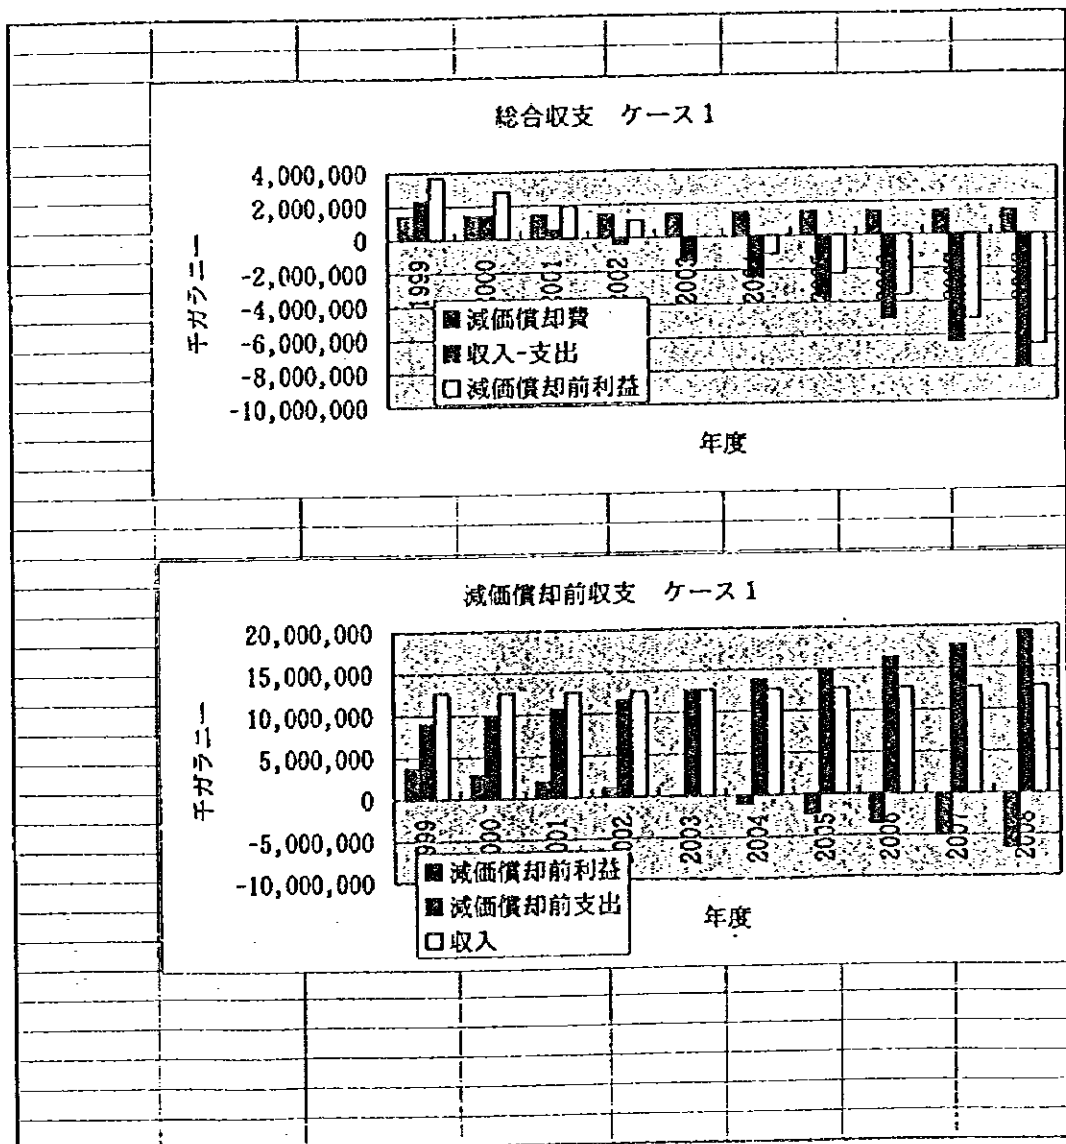 総合収支 ケース1
4,000,000
2,000,000
0
-2,000,000
-4,000,000
-6,000,000
-8,000,000
-10,000,000
千ガラニー
1999
2000
2001
2002
■減価償却費
■収入-支出
□減価償却前利益
年度
減価償却前収支 ケース1
20,000,000
15,000,000
10,000,000
5,000,000
0
-5,000,000
-10,000,000
千ガラニー
1999
2000
2001
2002
2003
2004
2005
2006
2007
2008
■減価償却前利益
■減価償却前支出
□収入
年度